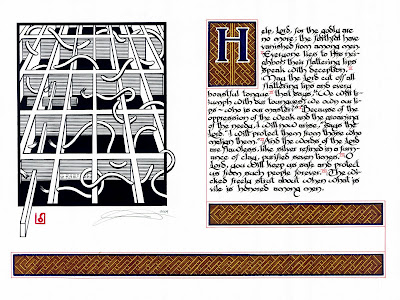 Help, Lord, for the godly are
no more; the faithful have
vanished from among men.
Everyone lies to his nei
ghbor; their flattering lips
speak with deception.
May the Lord cut off all
flattering lips and every
boastful tongue that says, "We will tri
umph with our tongues; we own our li
ps – who is our master?" "Because of the
oppression of the weak and the groaning
of the needy, I will now arise," says the
Lord. "I will protect them from those who
malign them." And the words of the Lord
are flawless, like silver refined in a furn
ance of clay, purified seven times. O
Lord, you will keep us safe and protect
us from such people forever. The wi
cked freely strut about when what is
vile is honored among men.